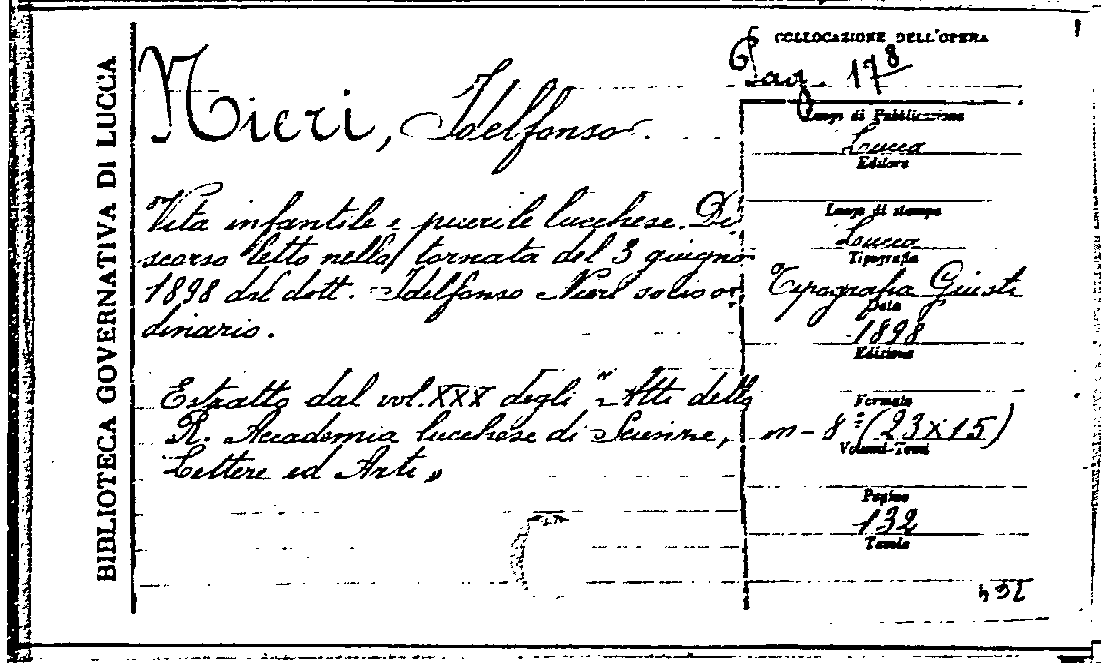 BIBLIOTECA GOVERNATIVA DI LUCCA
Nieri, Idelfonso.
Vita infantile e puerile lucchese. Di
scorso letto nella tornata del 3 giugno
1898 del dott. Idelfonso Nieri socio or
dinario.
Estratto dal vol. XXX degli "Atti della
R. Accademia lucchese di Scienze,
Lettere ed Arti"
COLLOCAZIONE DELL'OPERA
17
Luogo di Pubblicazione
Lucca
Editore
Luogo di stampa
Lucca
Tipografia
Tipografia Giusti
Data
1898
Edizione
Formato
m-8° (23x15)
Volumi-Tomi
Pagine
132
Tavole